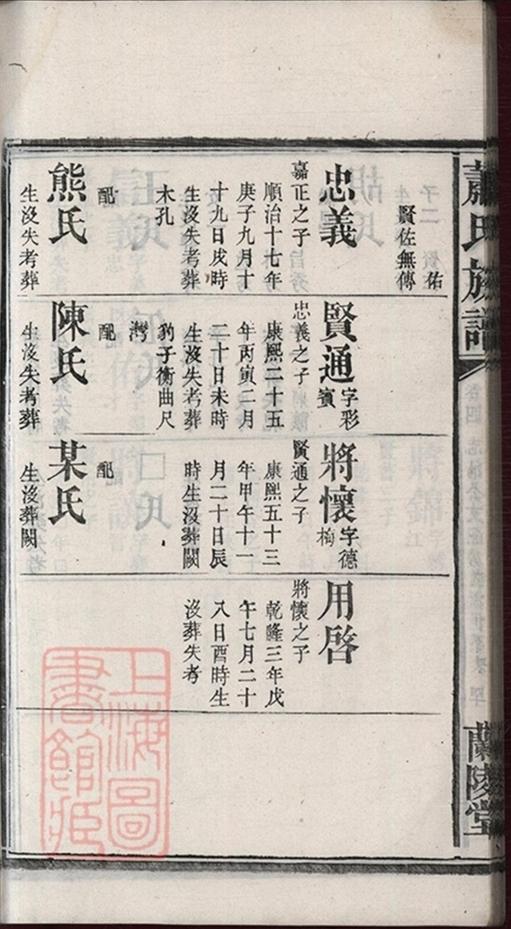 蕭氏族譜
蘭陵堂
佑
賢佐無傳
忠義
嘉正之子
順治十七年
庚子九月十
十九日戌時
生沒失考葬
木孔
配
熊氏
生沒失考葬
賢通
字彩
賓
忠義之子
康熙二十五
年丙寅二月
二十日未時
生沒失考葬
豹子衝曲尺
灣
配
陳氏
生沒失考葬
將懷
字德
梅
賢通之子
康熙五十三
年甲午十一
月二十日辰
時生沒葬闕
配
某氏
生沒葬闕
用啓
將懷之子
乾隆三年戊
午七月二十
八日酉時生
沒葬失考
上海圖
書館藏